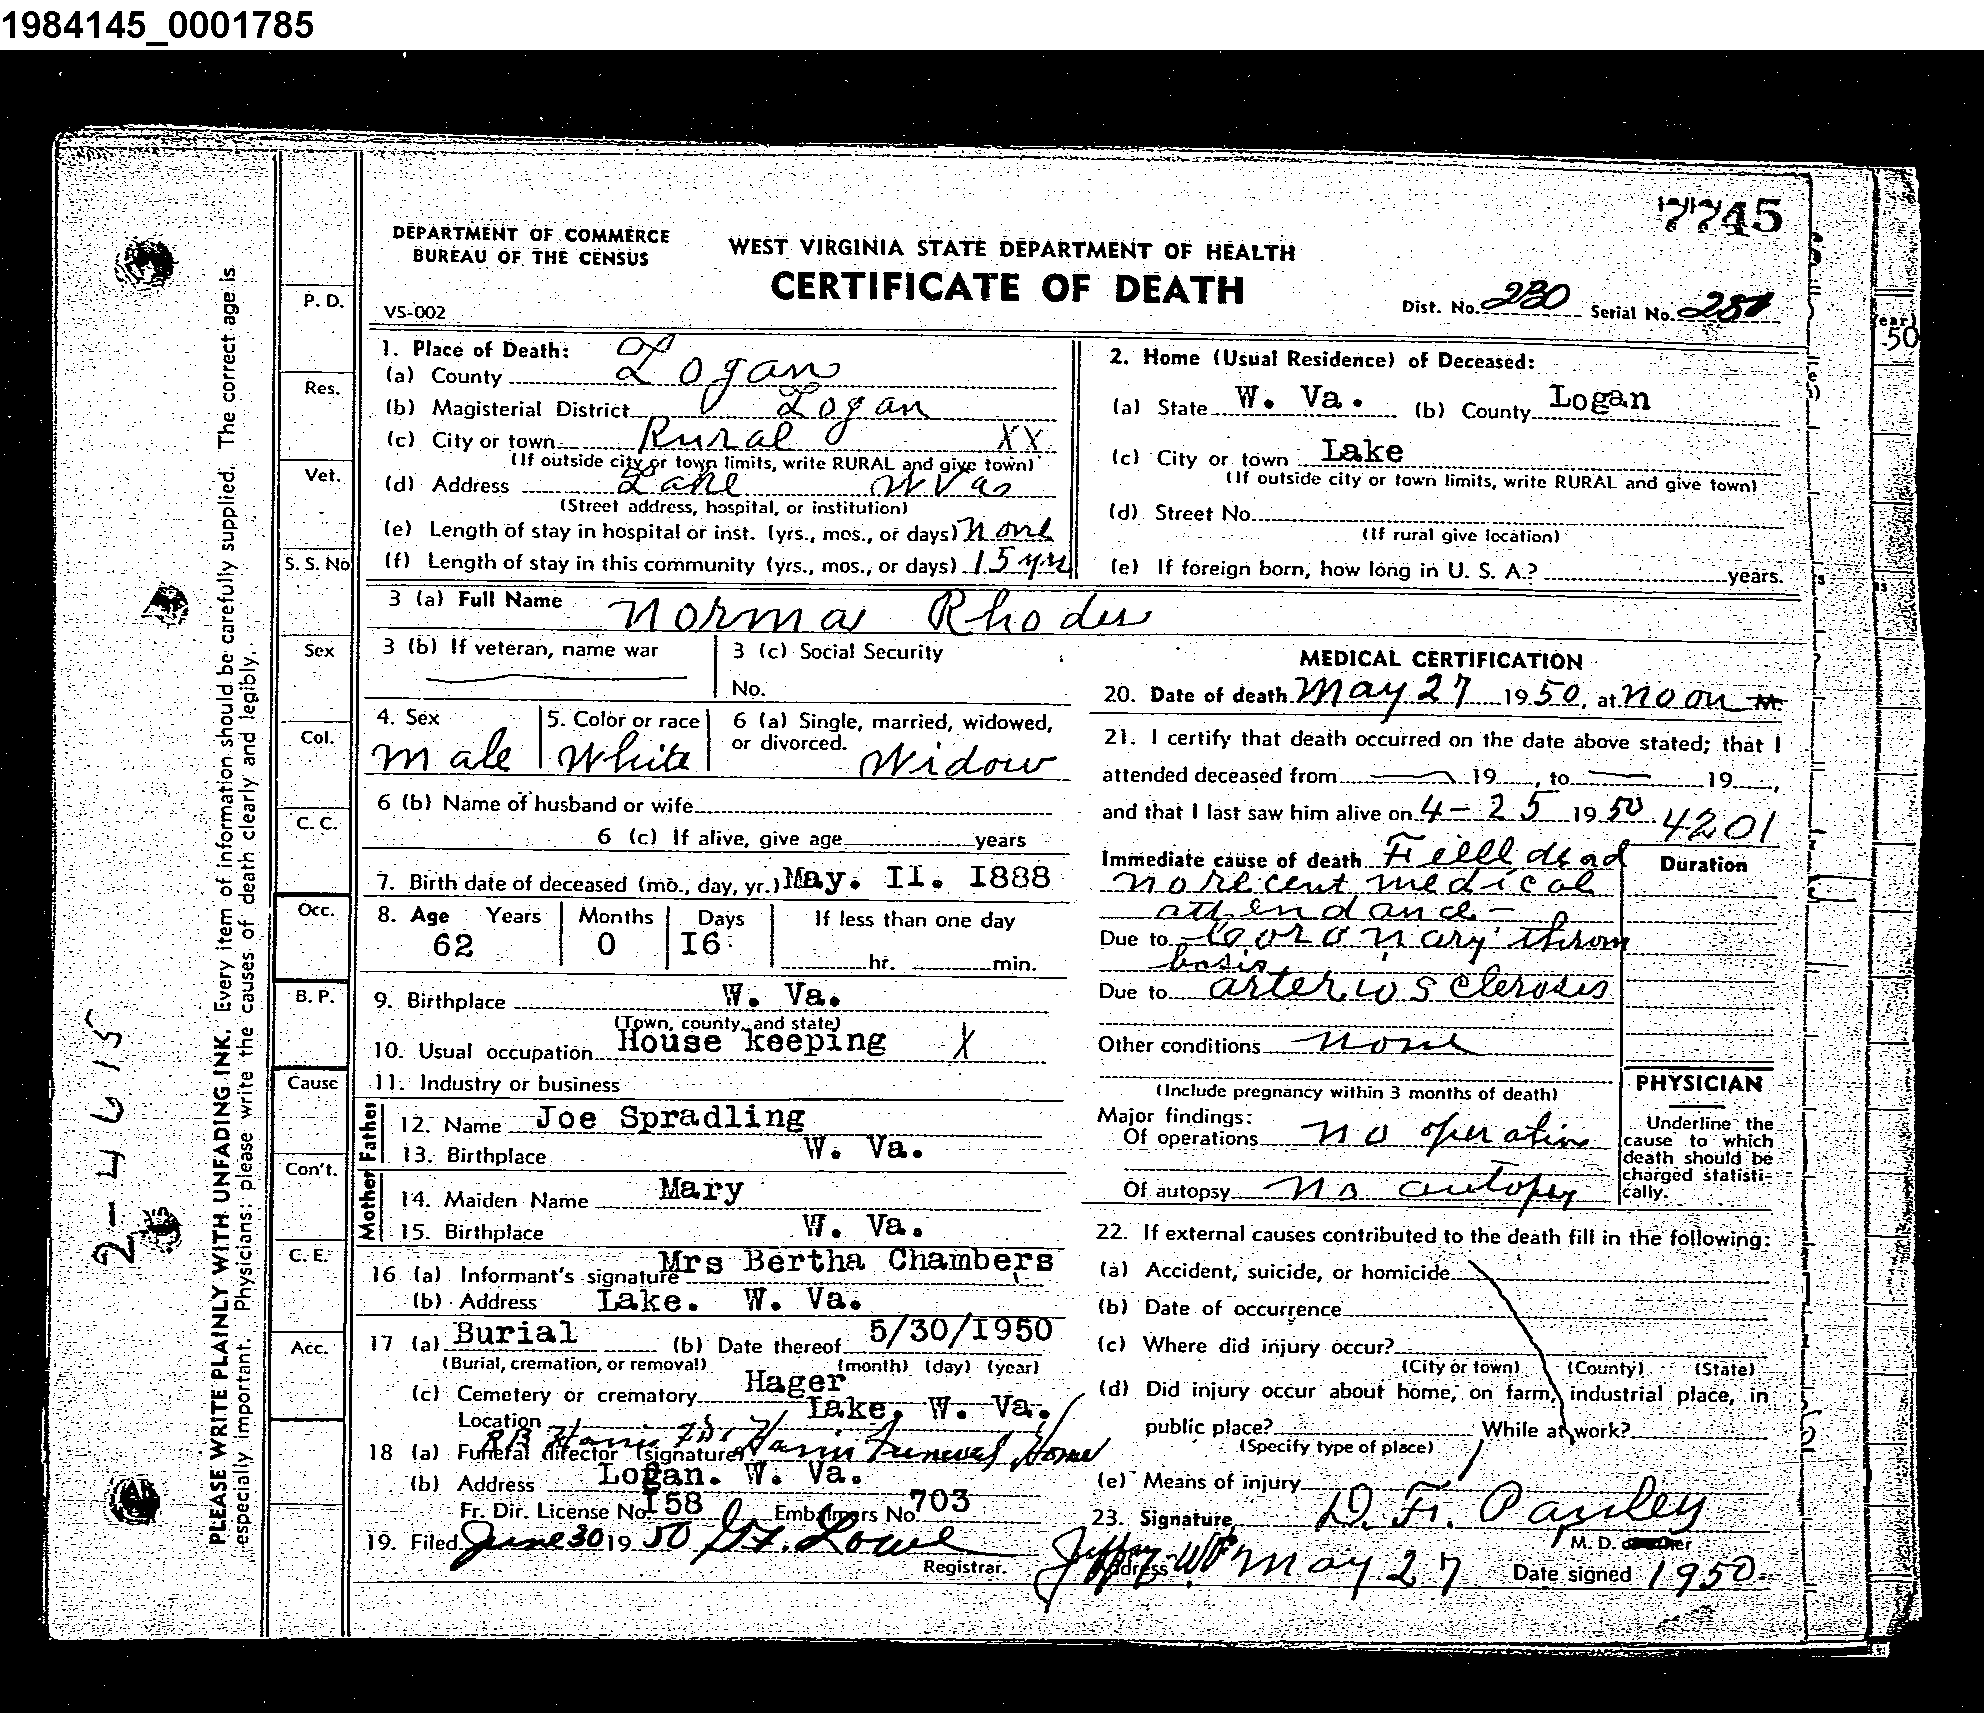 1984145_0001785
7745
DEPARTMENT OF COMMERCE
BUREAU OF THE CENSUS
WEST VIRGINIA STATE DEPARTMENT OF HEALTH
CERTIFICATE OF DEATH
VS-002
Dist. No. 230 Serial No.
1. Place of Death:
(a) County Logan
(b) Magisterial District Logan
(c) City or town Rural XX
(If outside city or town limits, write RURAL and give town)
(d) Address Lake W Va
(Street address, hospital, or institution)
(e) Length of stay in hospital or inst. (yrs., mos., or days) None
(f) Length of stay in this community (yrs., mos., or days) 15 yrs
2. Home (Usual Residence) of Deceased:
(a) State W. Va. (b) County Logan
(c) City or town Lake
(If outside city or town limits, write RURAL and give town)
(d) Street No.
(If rural give location)
(e) If foreign born, how long in U. S. A.? years.
3 (a) Full Name Norma Rhodes
3 (b) If veteran, name war
3 (c) Social Security
No.
4. Sex
Male
5. Color or race
White
6 (a) Single, married, widowed,
or divorced. Widow
6 (b) Name of husband or wife
6 (c) If alive, give age years
7. Birth date of deceased (mo., day, yr.) May. II. I888
8. Age Years Months Days If less than one day
62 0 I6
hr. min.
9. Birthplace W. Va.
(Town, county, and state)
10. Usual occupation House keeping X
11. Industry or business
Father
12. Name Joe Spradling
13. Birthplace W. Va.
Mother
14. Maiden Name Mary
15. Birthplace W. Va.
16 (a) Informant's signature Mrs Bertha Chambers
(b) Address Lake. W. Va.
17 (a) Burial (b) Date thereof 5/30/I950
(Burial, cremation, or removal) (month) (day) (year)
(c) Cemetery or crematory Hager
Location Lake. W. Va.
18 (a) Funeral director (signature) Harris Funeral Home
(b) Address Logan. W. Va.
Fr. Dir. License No. I58 Embalmers No. 703
19. Filed June 30 19 50
Registrar.
MEDICAL CERTIFICATION
20. Date of death May 27 1950, at noon M.
21. I certify that death occurred on the date above stated; that I
attended deceased from 19 , to 19 ,
and that I last saw him alive on 4-25 1950
4201
Immediate cause of death Fell dead
no recent medical
attendance -
Due to coronary throm
bosis
Due to arteriosclerosis
Duration
Other conditions none
(Include pregnancy within 3 months of death)
Major findings:
Of operations no operation
Of autopsy no autopsy
PHYSICIAN
Underline the
cause to which
death should be
charged statisti-
cally.
22. If external causes contributed to the death fill in the following:
(a) Accident, suicide, or homicide
(b) Date of occurrence
(c) Where did injury occur?
(City or town) (County) (State)
(d) Did injury occur about home, on farm, industrial place, in
public place? While at work?
(Specify type of place)
(e) Means of injury
23. Signature D. F. Pauley
M. D.
Address May 27 Date signed 1950
P. D.
Res.
Vet.
S. S. No
Sex
Col.
C. C.
Occ.
B. P.
Cause
Con't.
C. E.
Acc.
PLEASE WRITE PLAINLY WITH UNFADING INK. Every item of information should be carefully supplied. The correct age is
especially important. Physicians: please write the causes of death clearly and legibly.
50